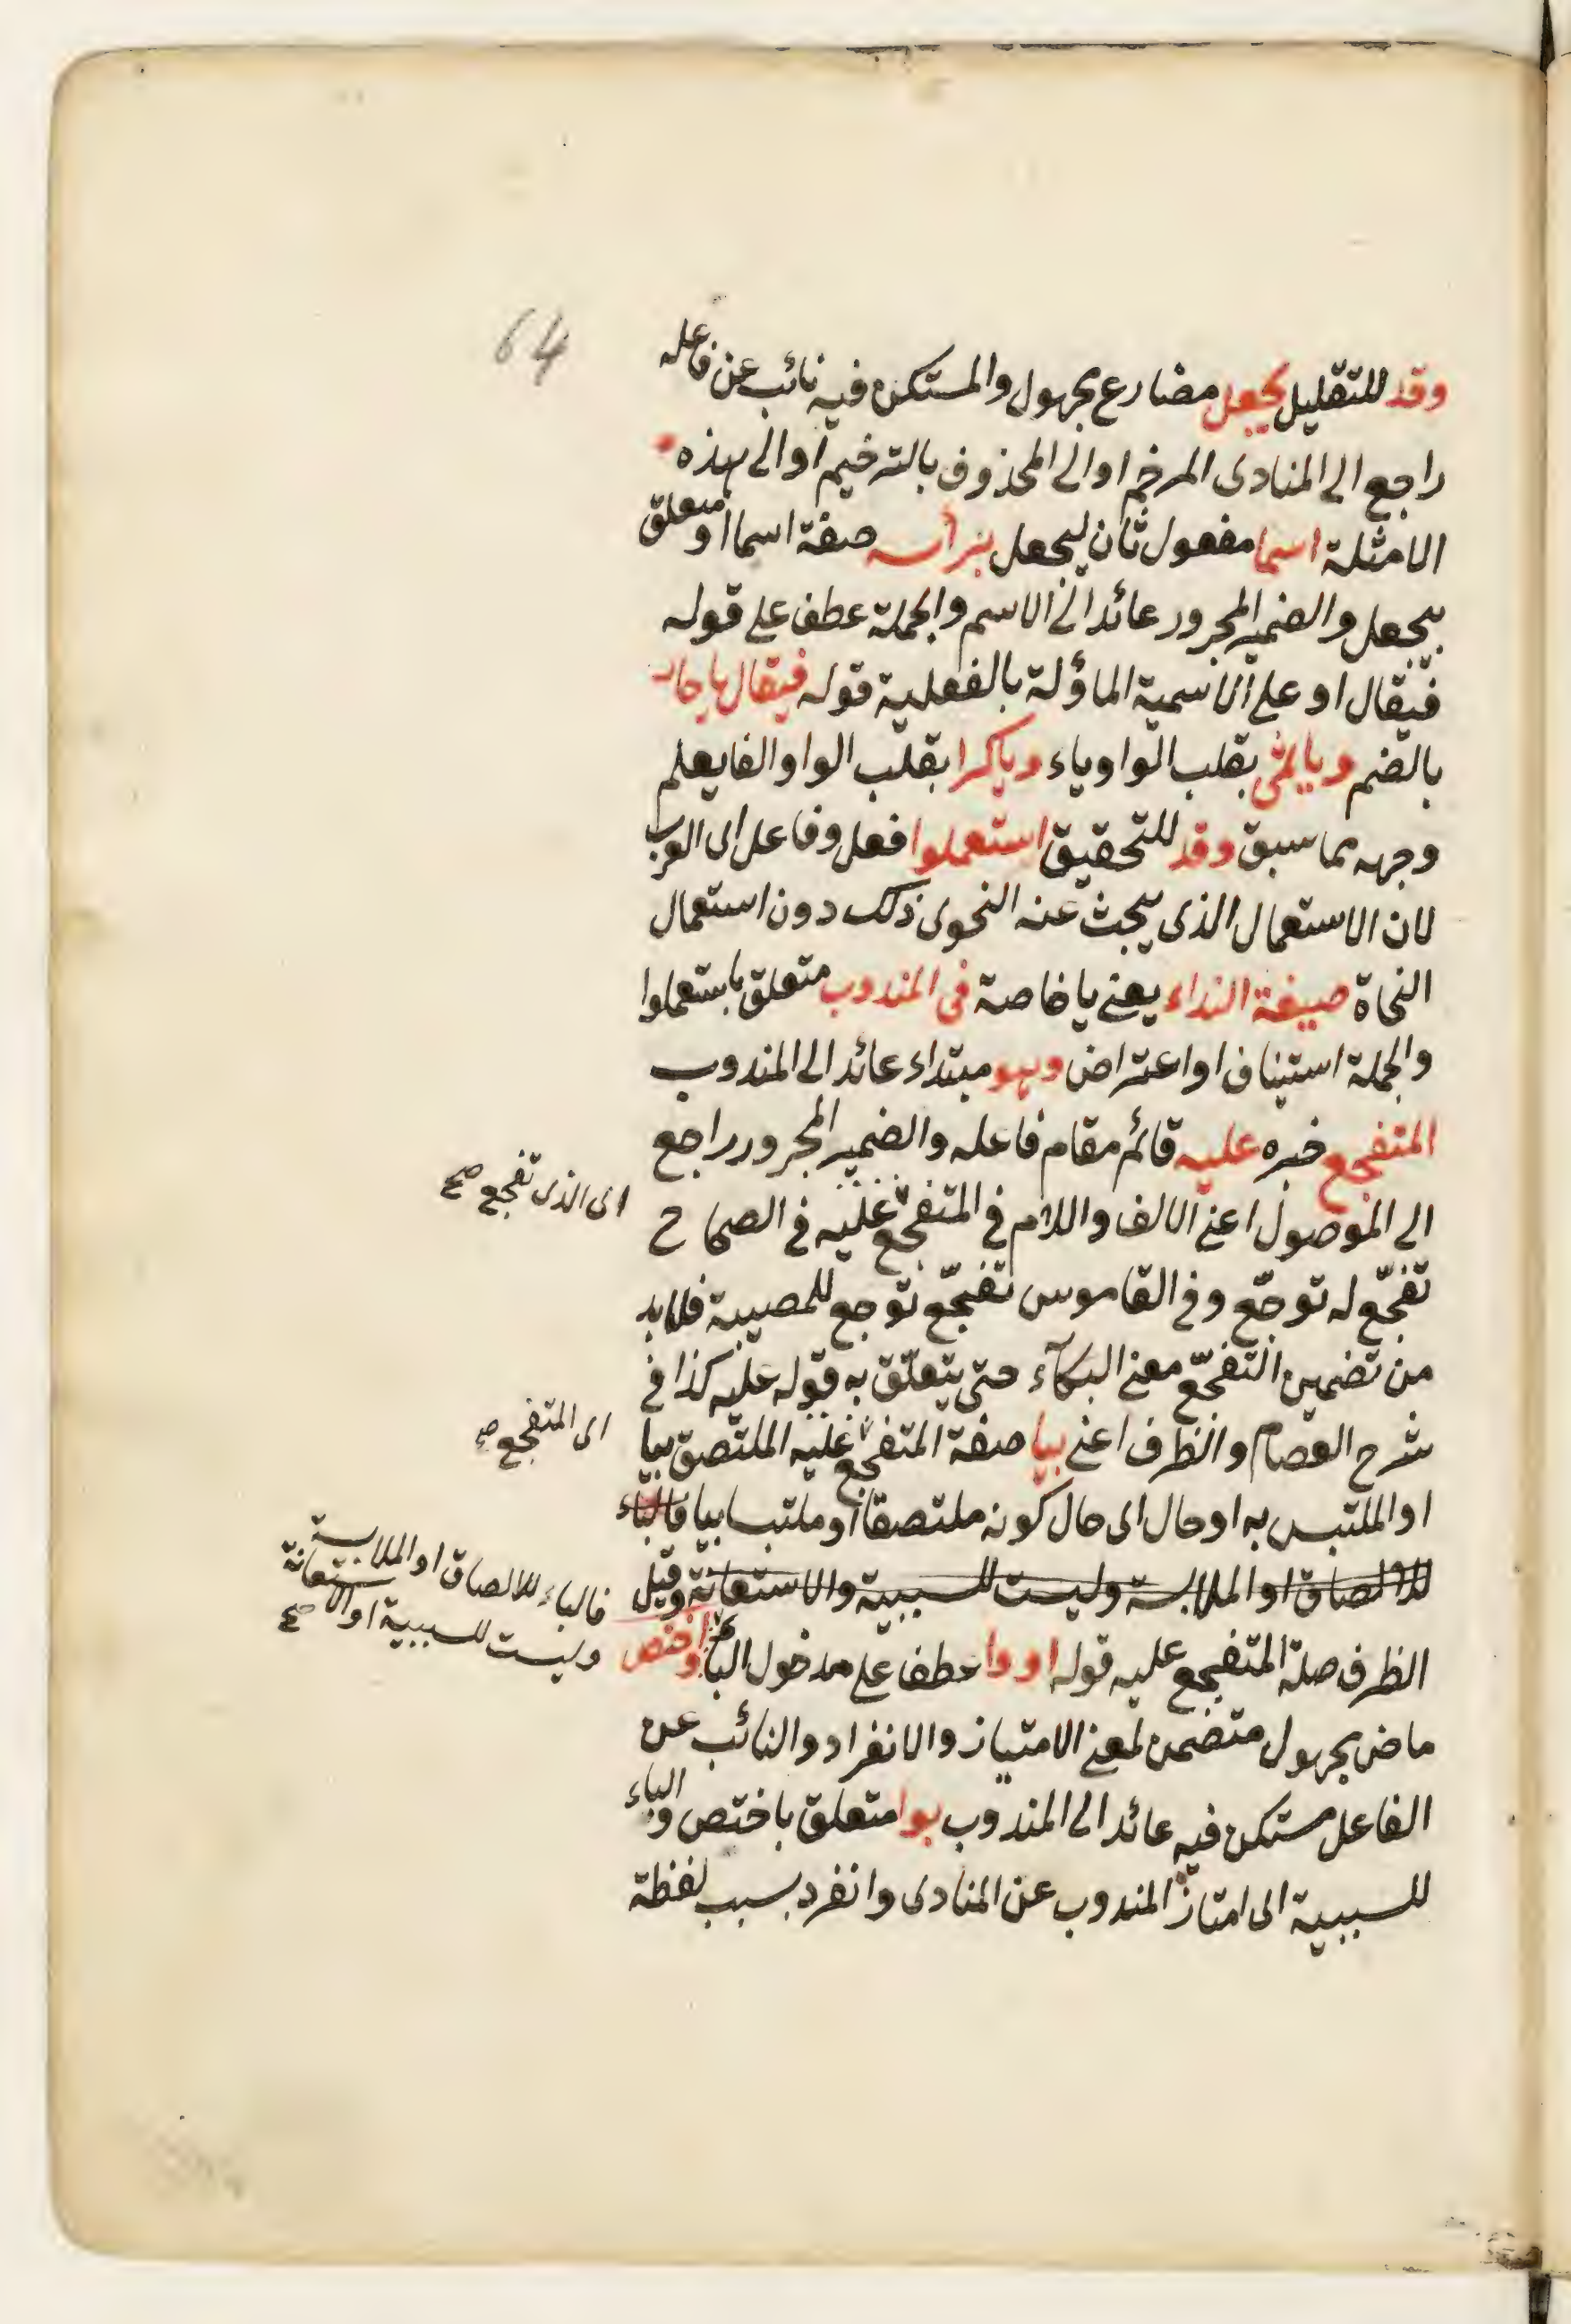 64
وقد للتقليل يجعل مضارع مجهول والمستكن فيه نائب عن فاعله
راجع الى المنادى المرخم او الى المحذوف بالترخيم او الى هذه
الامثلة اسما مفعول ثان ليجعل برأسه صفة اسما او متعلق
بيجعل والضمير المجرور عائد الى الاسم والجملة عطف على قوله
فيقال او على الاسمية الماؤلة بالفعلية قوله فيقال يا حار
بالضم ويا ثمى بقلب الواو ياء ويا كرا بقلب الواو الفا يعلم
وجهه مما سبق وقد للتحقيق استعملوا فعل وفاعل اى العرب
لان الاستعمال الذى يبحث عنه النحوى ذلك دون استعمال
النحاة صيغة النداء يعنى يا خاصة فى المندوب متعلق باستعملوا
والجملة استيناف او اعتراض وهو مبتداء عائد الى المندوب
المتفجع خبره عليه قائم مقام فاعله والضمير المجرور راجع
الى الموصول اعنى الالف واللام فى المتفجع عليه فى الصحاح
اى الذى تفجع صح
تفجّع له توجّع وفى القاموس تفجّع توجع للمصيبة فلا بد
من تضمين التفجّع معنى البكآء حتى يتعلّق به قوله عليه كذا فى
شرح العصام والظرف اعنى بيا صفة المتفجع عليه الملتصق بيا
اى المتفجع صح
او الملتبس به او حال اى حال كونه ملتصقا او ملتبسا بيا فالباء
للالصاق او الملابسة وليست للسببية والاستعانة وقيل
فالباء للالصاق او الملابسة
وليست للسببية او الاستعانة صح
الظرف صلة المتفجع عليه قوله او وا عطف على مدخول الباء واختص
ماض مجهول متضمن لمعنى الامتياز والانفراد والنائب عن
الفاعل مستكن فيه عائد الى المندوب بوا متعلق باختص والباء
للسببية اى امتاز المندوب عن المنادى وانفرد بسبب لفظة